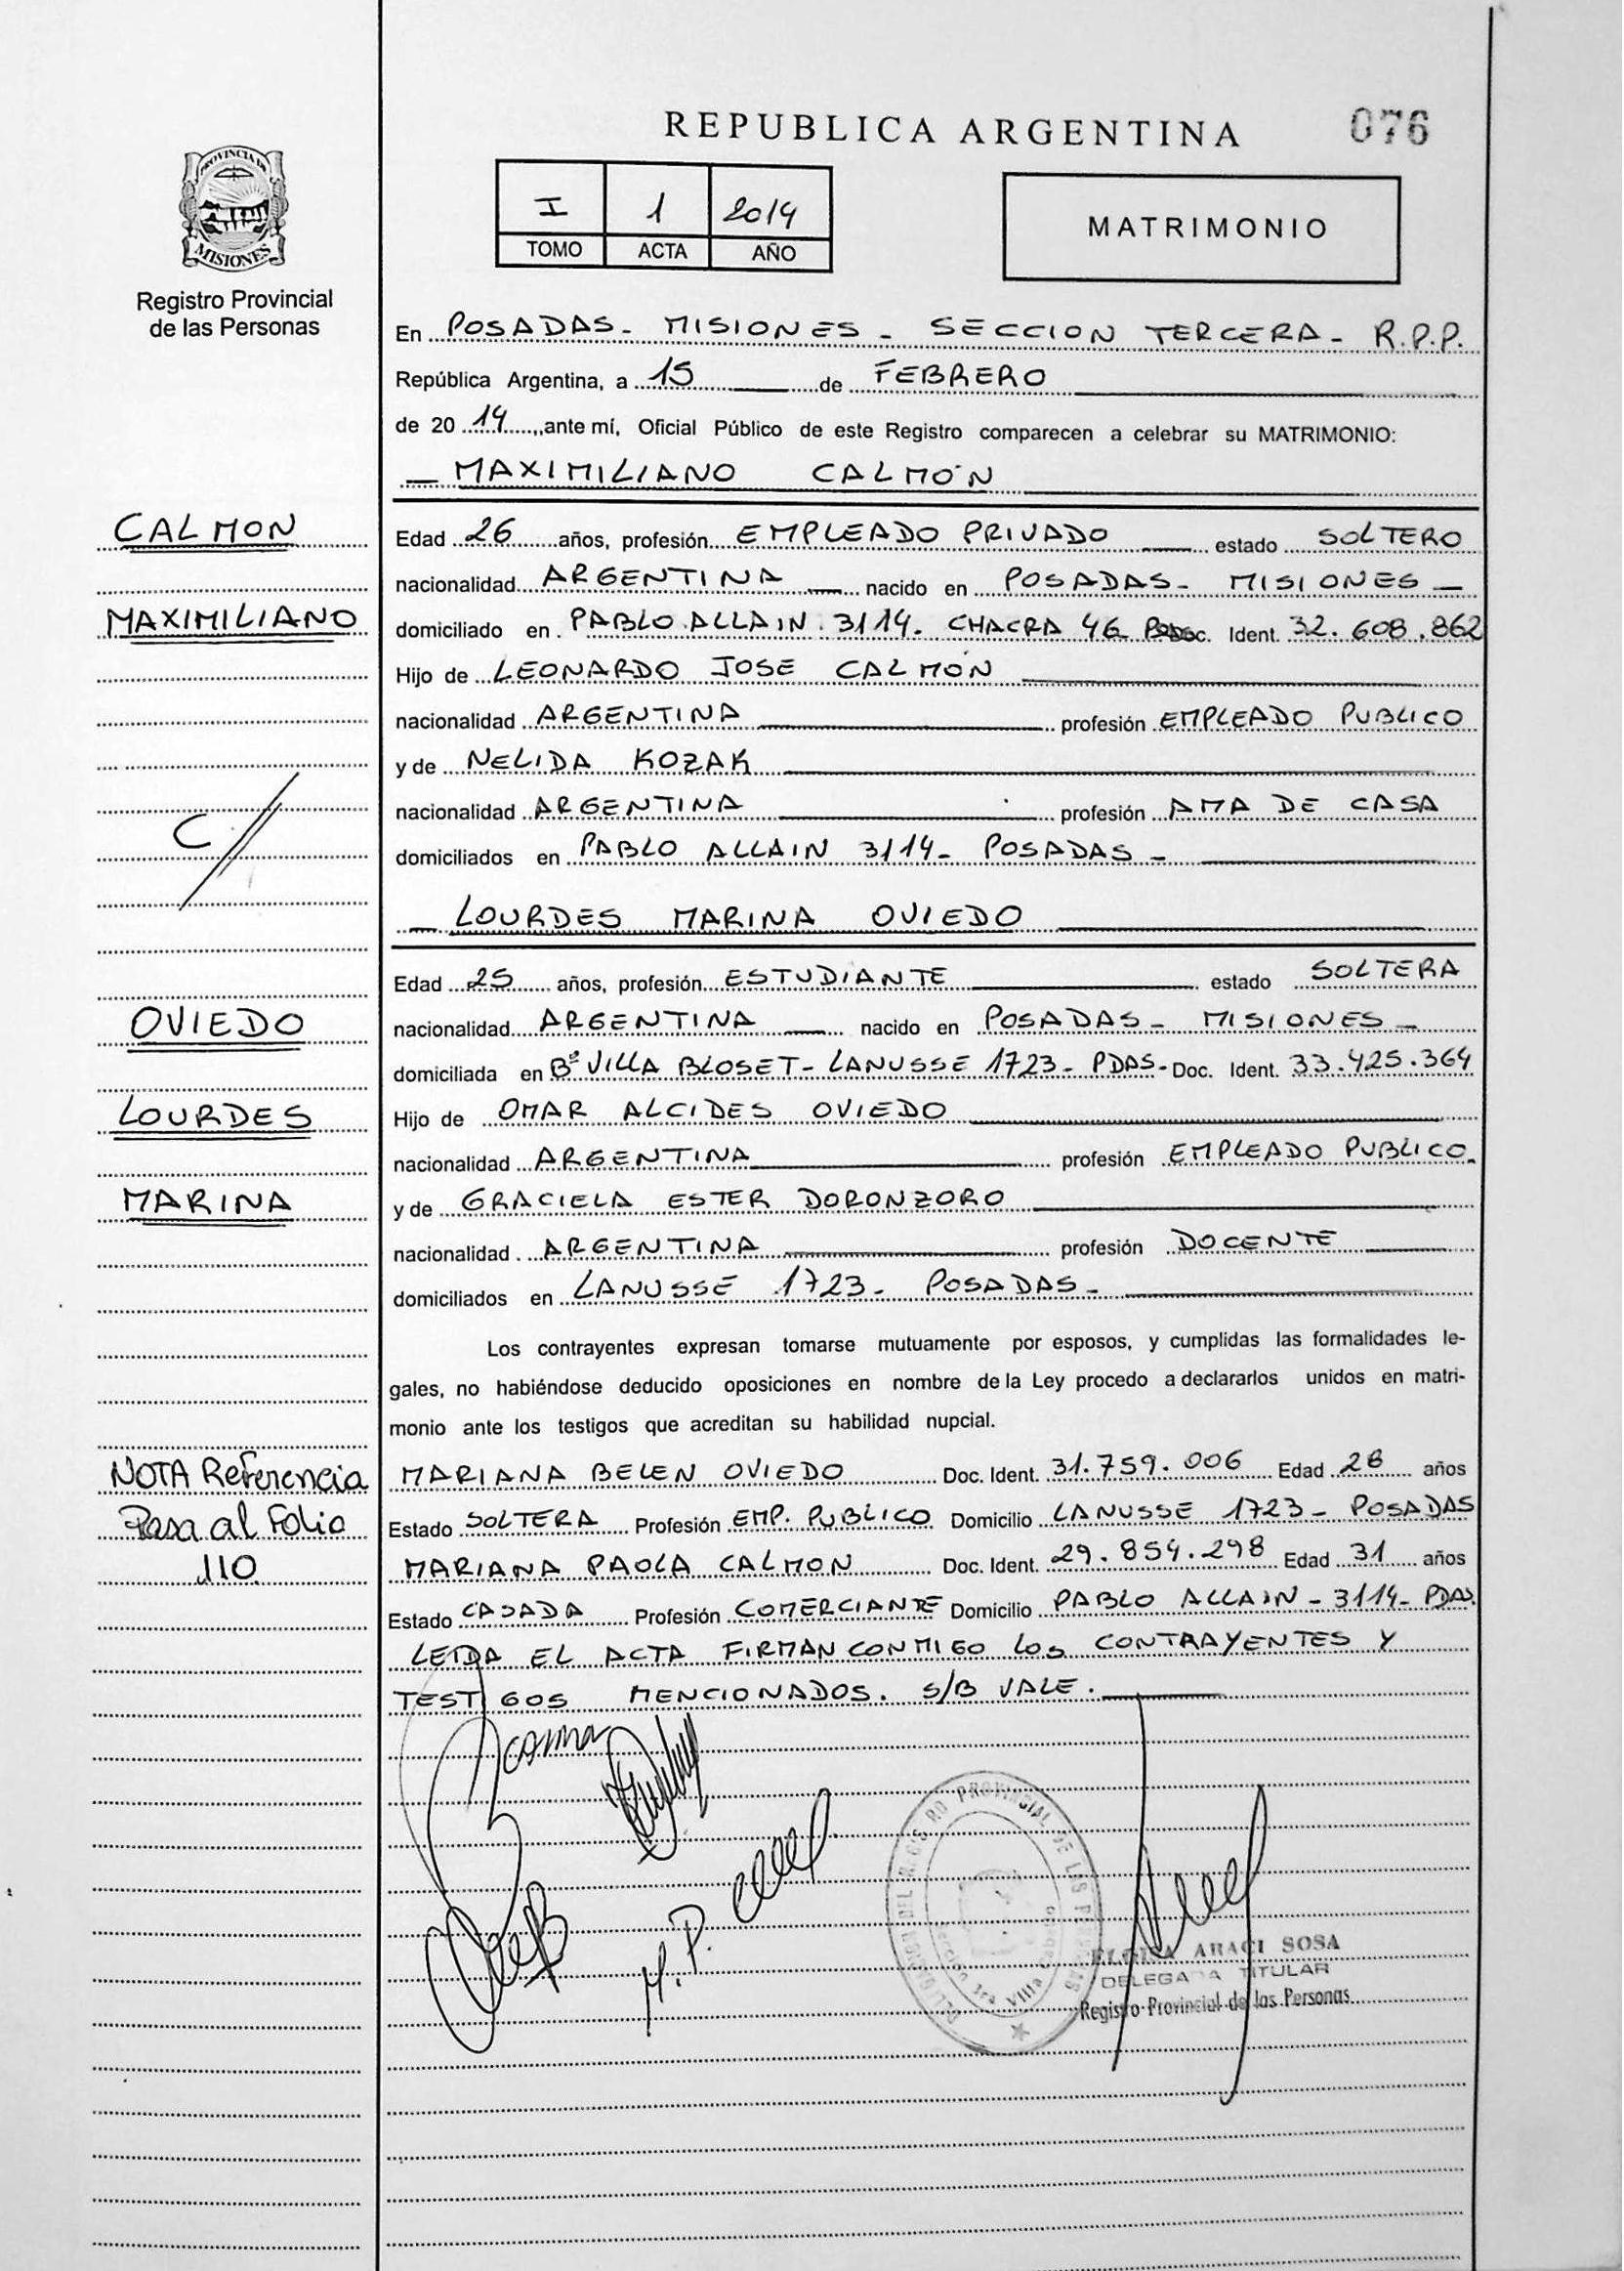 REPUBLICA ARGENTINA
076
PROVINCIA DE
MISIONES
Registro Provincial
de las Personas
I 1 2014
TOMO ACTA AÑO
MATRIMONIO
En POSADAS - MISIONES - SECCION TERCERA - R.P.P.
República Argentina, a 15 de FEBRERO
de 20 14, ante mí, Oficial Público de este Registro comparecen a celebrar su MATRIMONIO:
MAXIMILIANO CALMÓN
CALMON
MAXIMILIANO
Edad 26 años, profesión EMPLEADO PRIVADO estado SOLTERO
nacionalidad ARGENTINA nacido en POSADAS - MISIONES -
domiciliado en PABLO ALLAIN 3114. CHACRA 46 Doc. Ident. 32.608.862
Hijo de LEONARDO JOSE CALMÓN
nacionalidad ARGENTINA profesión EMPLEADO PUBLICO
y de NELIDA KOZAK
nacionalidad ARGENTINA profesión AMA DE CASA
domiciliados en PABLO ALLAIN 3114 - POSADAS -
C/
LOURDES MARINA OVIEDO
OVIEDO
LOURDES
MARINA
Edad 25 años, profesión ESTUDIANTE estado SOLTERA
nacionalidad ARGENTINA nacido en POSADAS - MISIONES -
domiciliada en Bº VILLA BLOSET - LANUSSE 1723 - PDAS - Doc. Ident. 33.425.364
Hijo de OMAR ALCIDES OVIEDO
nacionalidad ARGENTINA profesión EMPLEADO PUBLICO
y de GRACIELA ESTER DORONZORO
nacionalidad ARGENTINA profesión DOCENTE
domiciliados en LANUSSE 1723 - POSADAS -
Los contrayentes expresan tomarse mutuamente por esposos, y cumplidas las formalidades le-
gales, no habiéndose deducido oposiciones en nombre de la Ley procedo a declararlos unidos en matri-
monio ante los testigos que acreditan su habilidad nupcial.
NOTA Referencia
Pasa al Folio
110
MARIANA BELEN OVIEDO Doc. Ident. 31.759.006 Edad 28 años
Estado SOLTERA Profesión EMP. PUBLICO Domicilio LANUSSE 1723 - POSADAS
MARIANA PAOLA CALMON Doc. Ident. 29.854.298 Edad 31 años
Estado CASADA Profesión COMERCIANTE Domicilio PABLO ALLAIN - 3114 - PDAS.
LEIDA EL ACTA FIRMAN CONMIGO LOS CONTRAYENTES Y
TESTIGOS MENCIONADOS. S/B VALE.
M.P.
DELEGACION DEL REGISTRO PROVINCIAL DE LAS PERSONAS
Villa
ARACI SOSA
DELEGADA TITULAR
Registro Provincial de las Personas